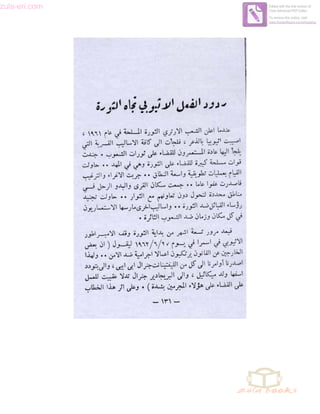 zula-eri.com
Edited with the trial version of
Foxit Advanced PDF Editor
To remove this notice, visit:
www.foxitsoftware.com/shopping
ردود الفعل الاثيوبي تجاه الثورة
عندما اعلن الشعب الارتري الثورة المسلحة في عام ١٩٦١ ،
اصيبت اثيوبيا بالذعر ، فلجأت الى كافة الاساليب القسرية التي
يلجأ اليها عادة المستعمرون للقضاء على ثورات الشعوب ٠ جندت
قوات مسلحة كبيرة للقضاء على الثورة وهي في المهد ٠٠ حاولت
القيام بعمليات تطويقية واسعة النطاق ٠٠ جربت الاغراء والترغيب
فاصدرت عفوا عاما ٠٠ جمعت سكان القرى والبدو الرحل فسي
مناطق محددة للحيول دون تعاونهم مع الثوار ٠٠ حاولت تجنيد
رؤساء القبائل ضد الثورة ٠٠ واساليب اخرى مارسها الاستعماريون
في كل مكان وزمان ضد الشعوب الثائرة ٠
فبعد مرور تسعة اشهر من بداية الثورة وقف الامبراطور
الاثيوبي في اسمرا في يسوم ١٩٦٢/٦/٢٠ ليقسول ( ان بعض
الخارجين عن القانون يرتكبون اعمالا اجرامية ضد الامن ٠٠ ولهذا
اصدرنا أوامرنا الى كل من الليفتينانت جنرال ابي ابيبي ، والى بتودد
اسفها ولد ميكائيل ، والى البريجادير جنرال تدلا عقبيت للعمل
على القضاء على هؤلاء المجرمين بشدة ) ٠ وعلى اثر هذا الخطاب
— ١٣٦ —